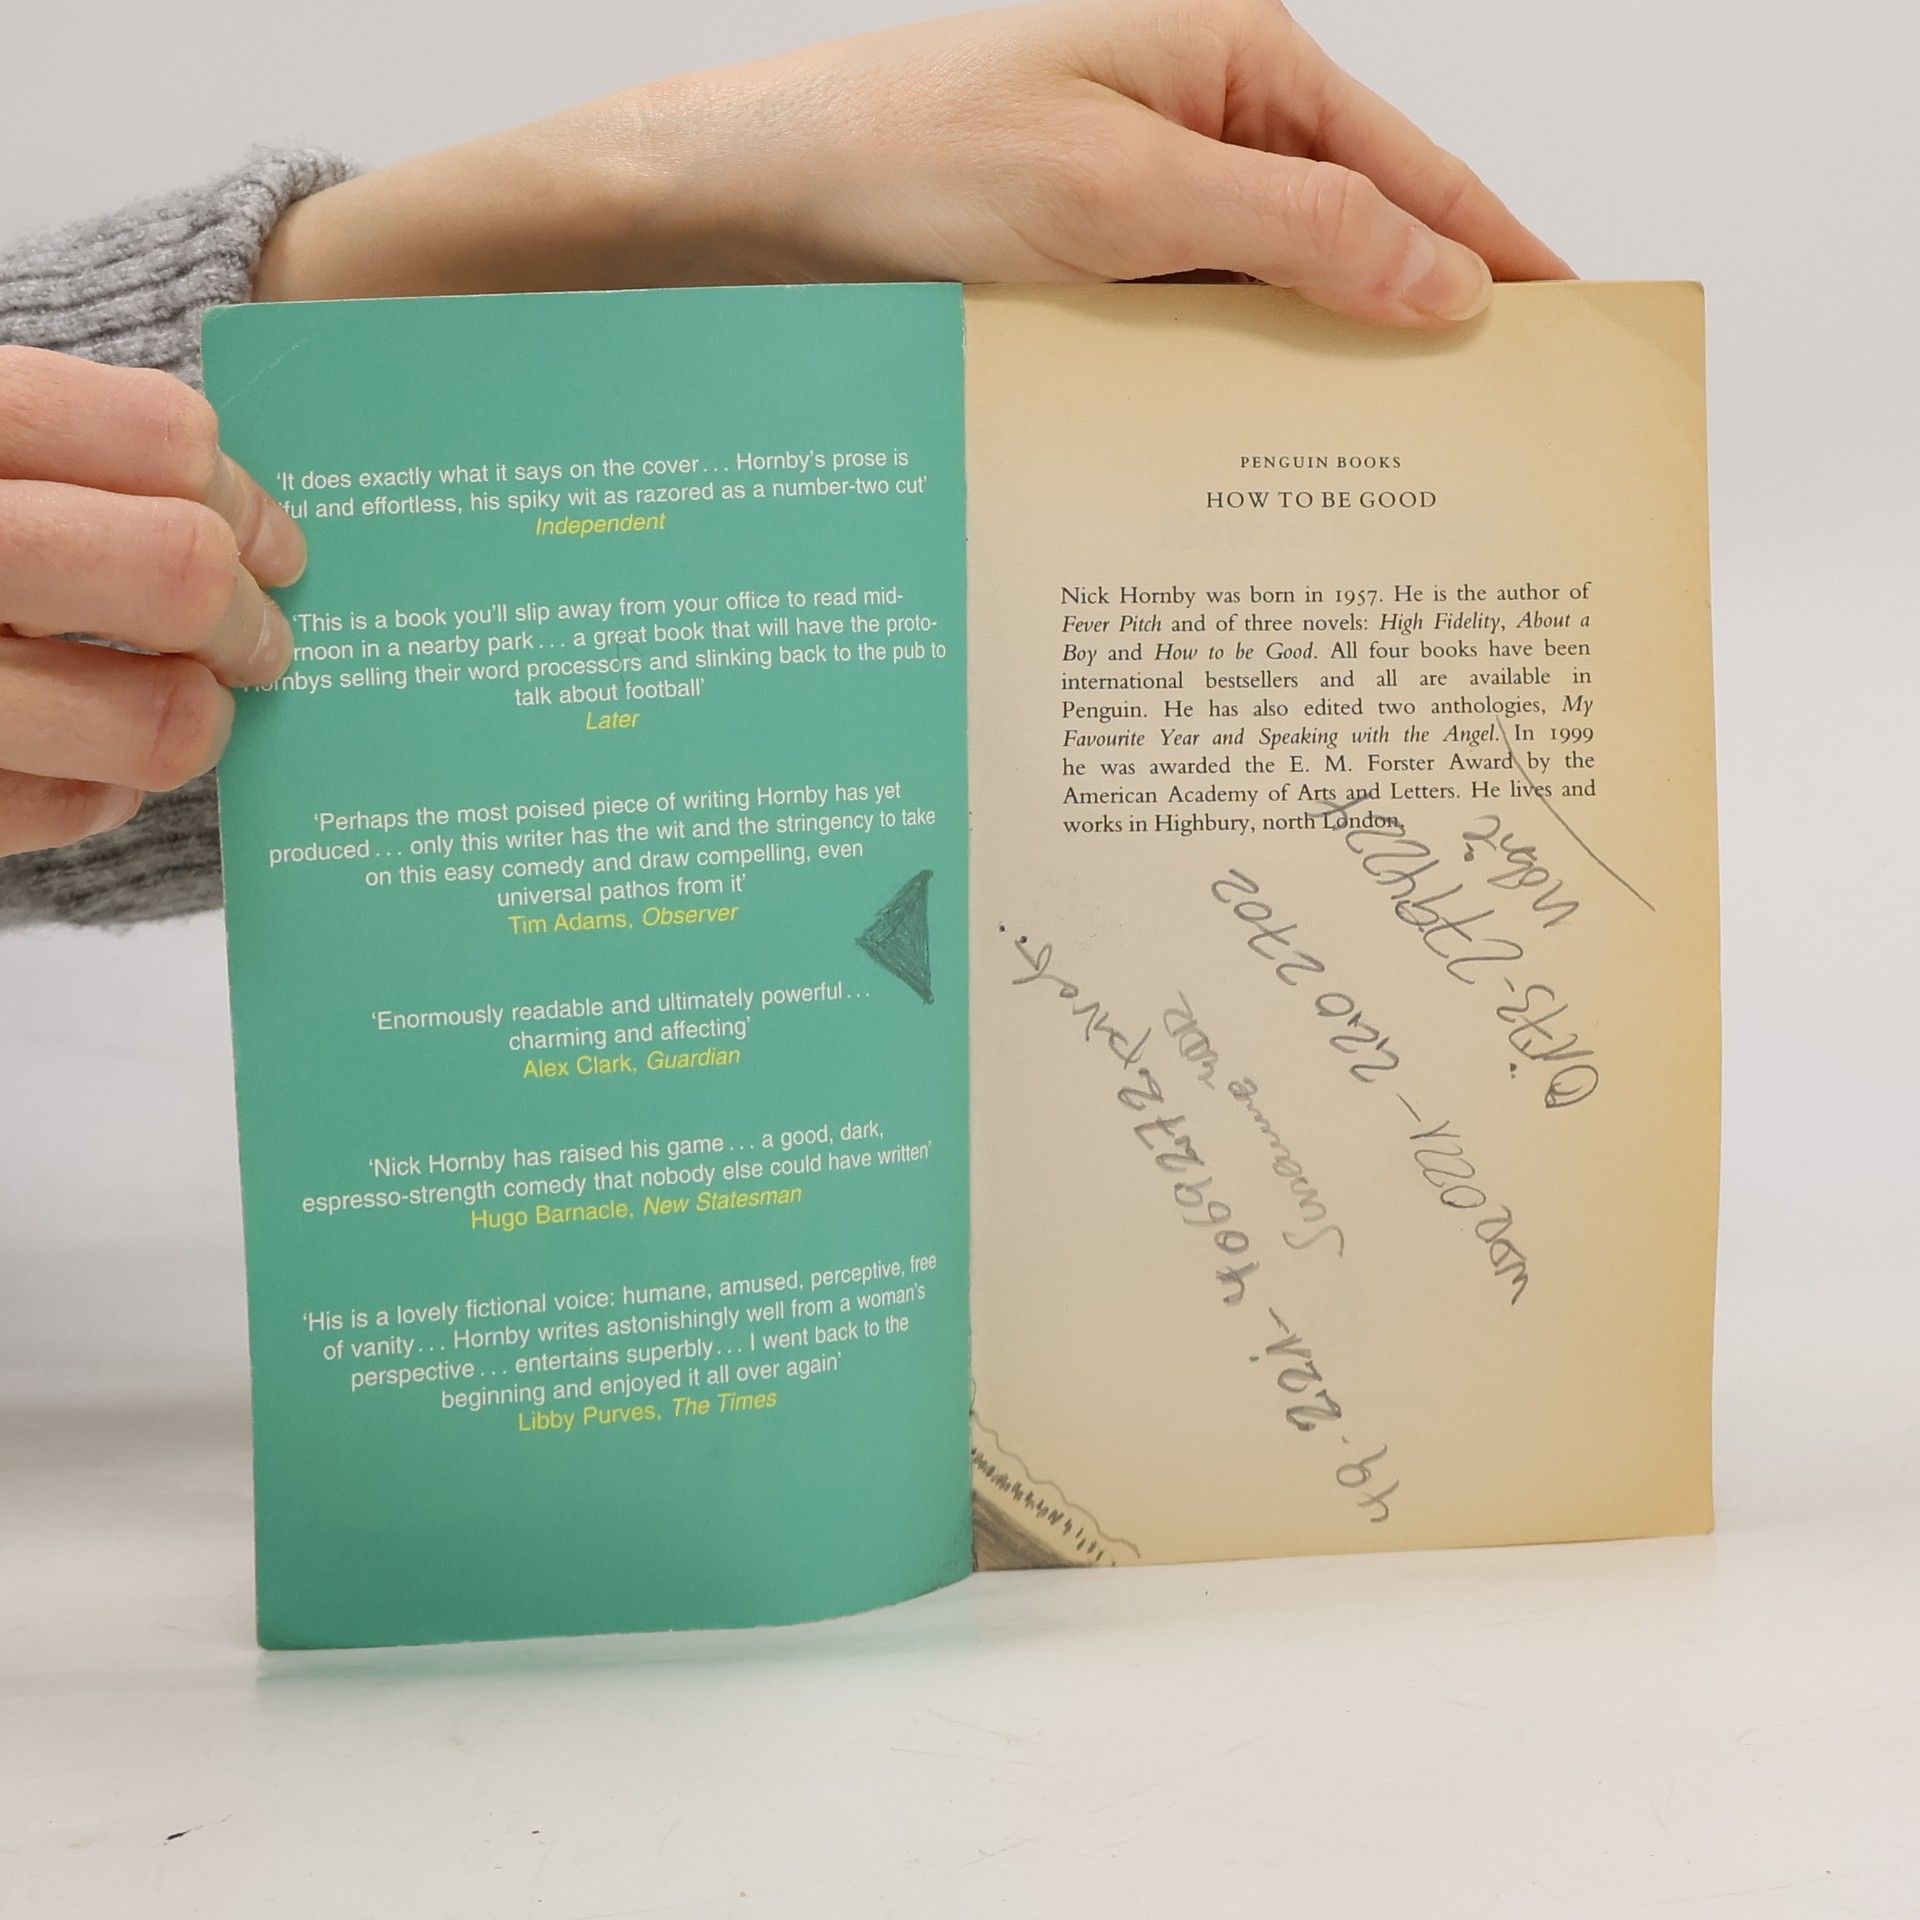 'It does exactly what it says on the cover... Hornby's prose is
and effortless, his spiky wit as razored as a number-two cut'
Independent
'This is a book you'll slip away from your office to read mid-
in a nearby park... a great book that will have the proto-
selling their word processors and slinking back to the pub to
talk about football'
Later
'Perhaps the most poised piece of writing Hornby has yet
produced... only this writer has the wit and the stringency to take
on this easy comedy and draw compelling, even
universal pathos from it'
Tim Adams, Observer
'Enormously readable and ultimately powerful...
charming and affecting'
Alex Clark, Guardian
'Nick Hornby has raised his game... a good, dark,
espresso-strength comedy that nobody else could have written'
Hugo Barnacle, New Statesman
'His is a lovely fictional voice: humane, amused, perceptive, free
of vanity... Hornby writes astonishingly well from a woman's
perspective... entertains superbly... I went back to the
beginning and enjoyed it all over again'
Libby Purves, The Times
PENGUIN BOOKS
HOW TO BE GOOD
Nick Hornby was born in 1957. He is the author of
Fever Pitch and of three novels: High Fidelity, About a
Boy and How to be Good. All four books have been
international bestsellers and all are available in
Penguin. He has also edited two anthologies, My
Favourite Year and Speaking with the Angel. In 1999
he was awarded the E. M. Forster Award by the
American Academy of Arts and Letters. He lives and
works in Highbury, north London.
2202702
49-221-4069272